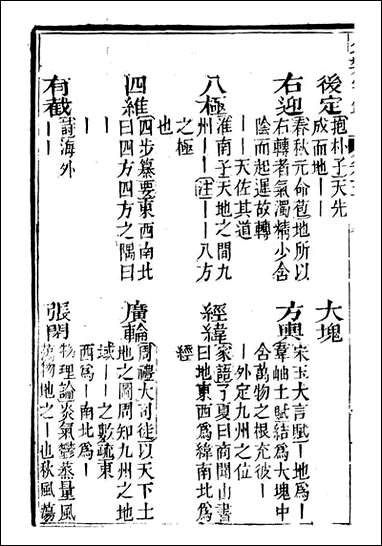 後定
抱朴子天先
成而地丨丨
大塊
右迎
春秋元命苞地所以
右轉者氣濁精少含
陰而起遲故轉
丨丨天佐其道
方輿
宋玉大言賦丨地爲丨
韋岫土賦結爲大塊中
含萬物之根充彼丨
丨外定九州之位
八極
淮南子天地之間九
州丨丨註丨丨八方
之極
也
經緯
家語子夏曰商聞山書
曰地東西爲緯南北爲
經
四維
四步纂要東西南北
曰四方四方之隅曰
丨丨
廣輪
周禮大司徒以天下土
地之圖周知九州之地
域丨丨之數疏東
西爲丨南北爲丨
有截
詩海外
丨丨
張閉
物理論炎氣鬱蒸量風
萬物地之丨也秋風蕩